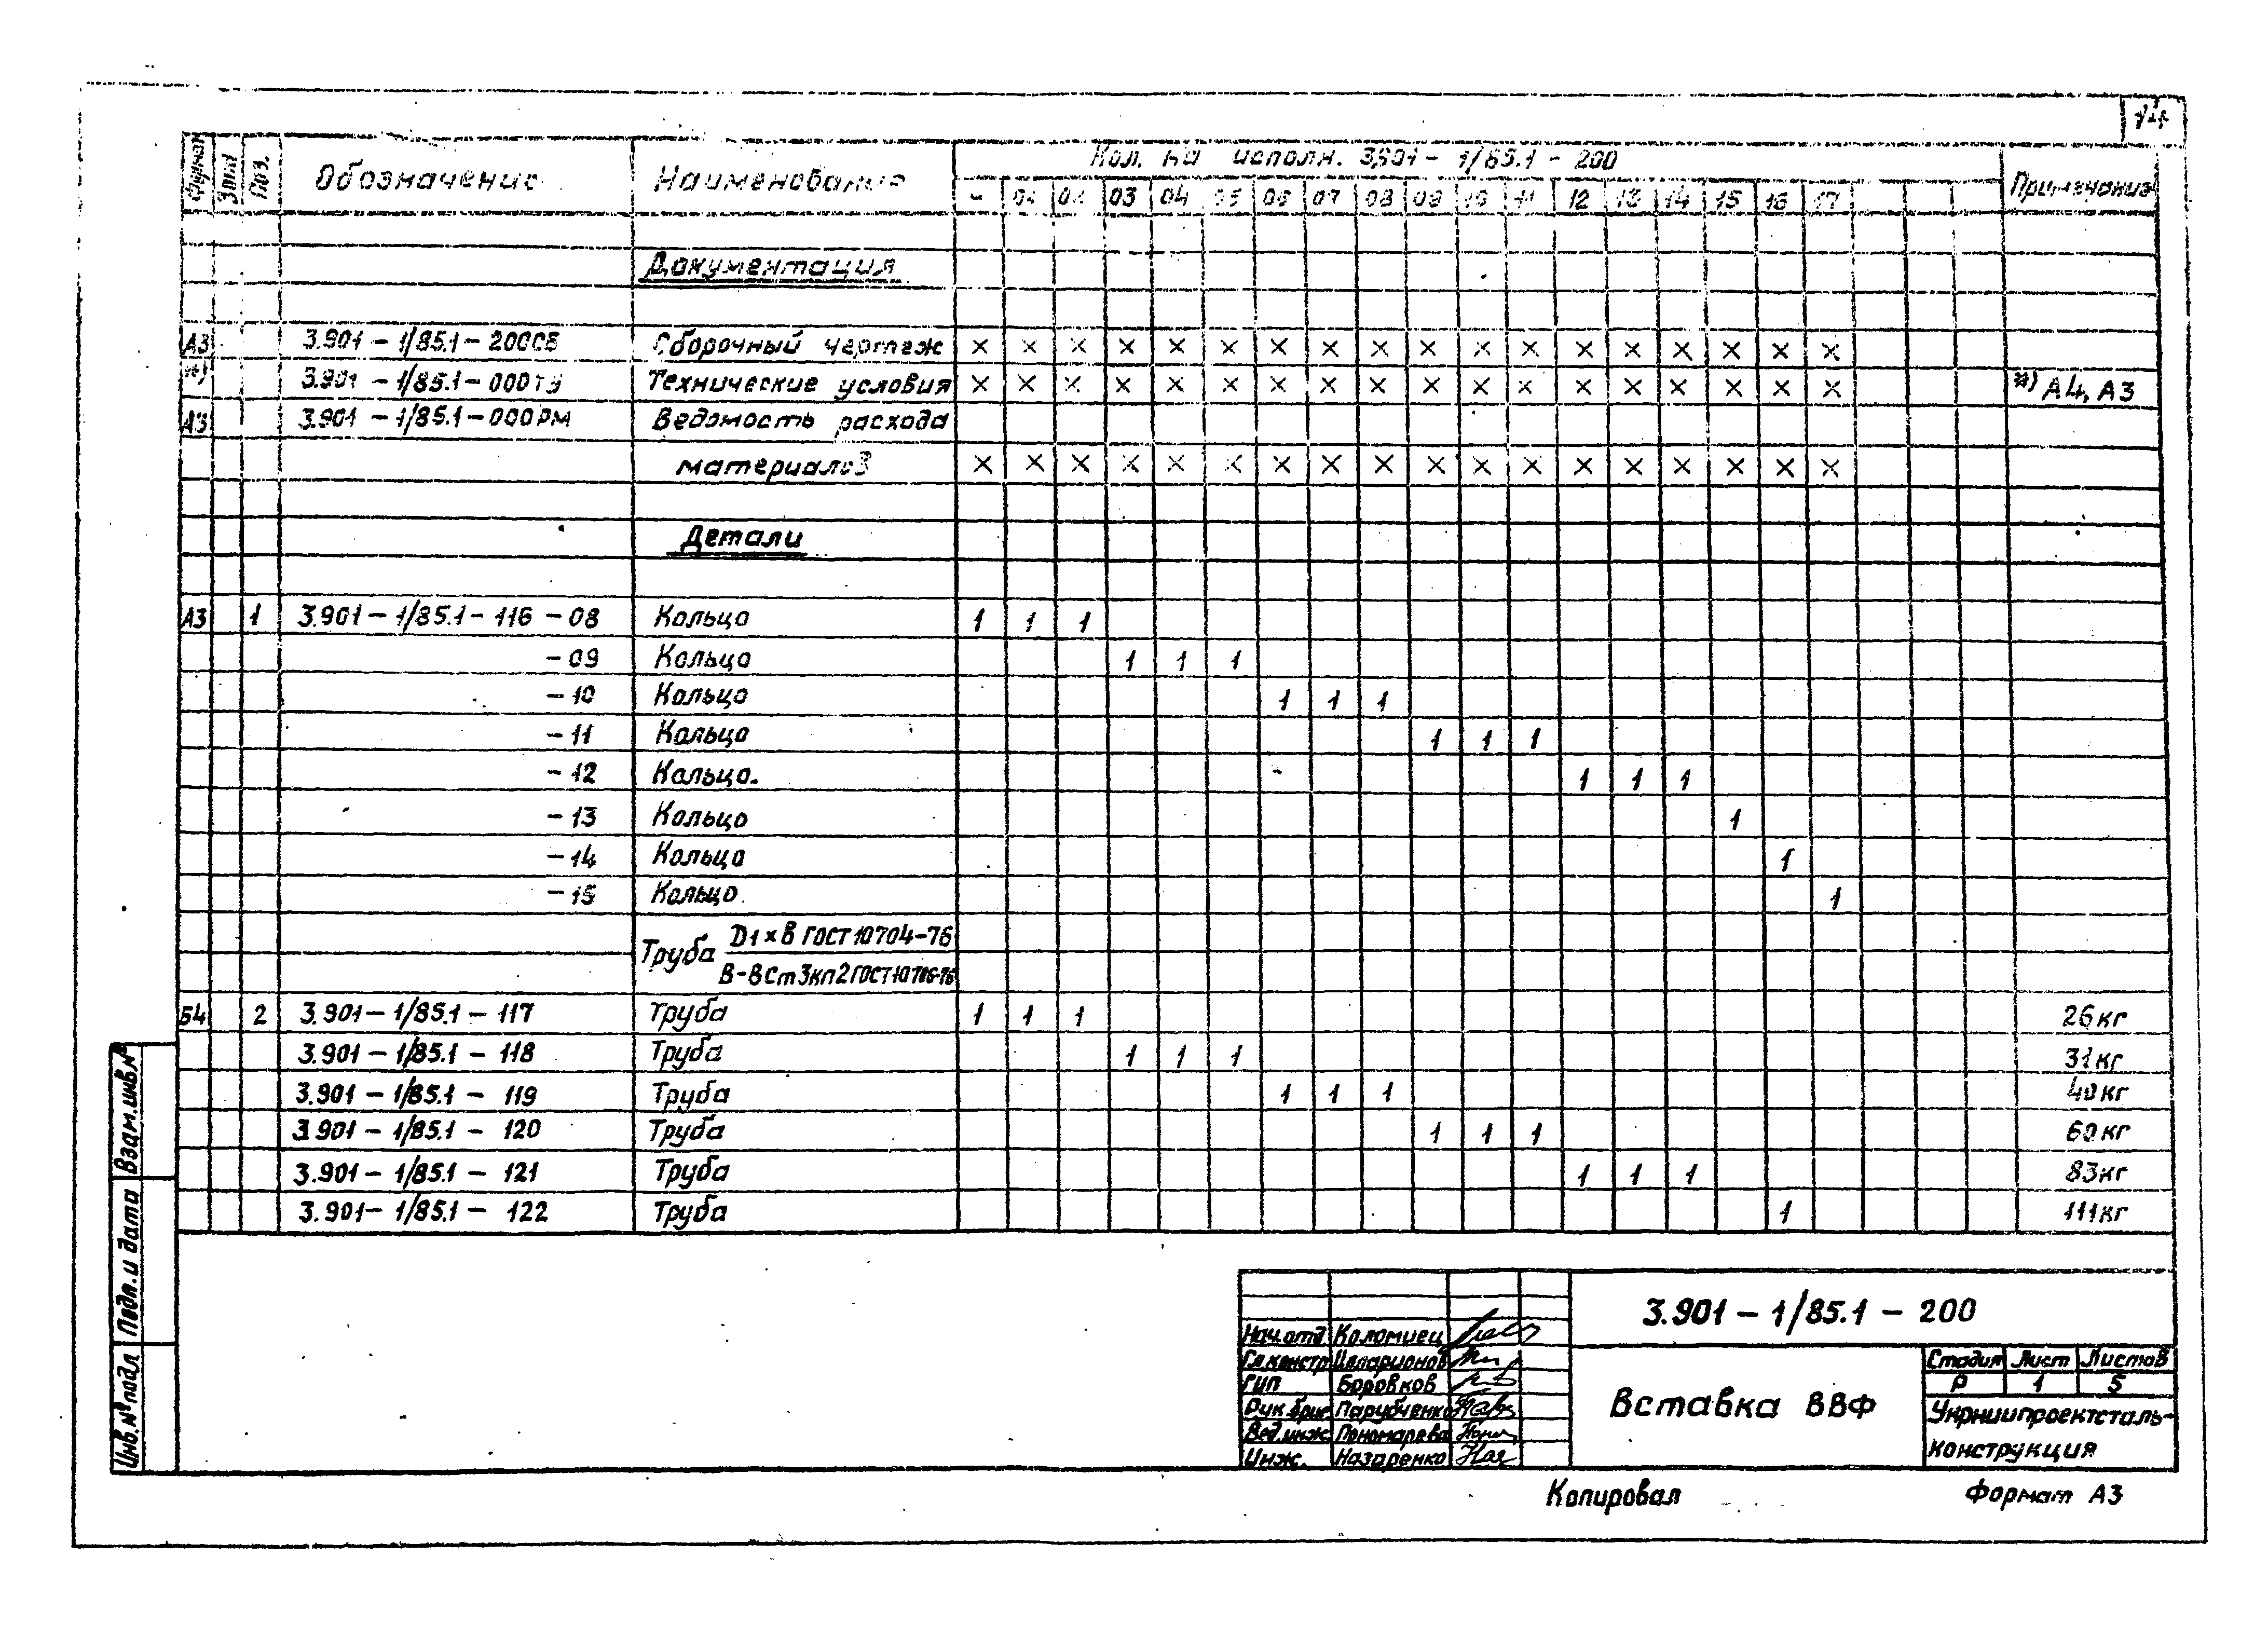 Формат Зона Поз. Обозначение Наименование Кол. на исполн. 3.901-1/85.1-200 Примечание
- 01 02 03 04 05 06 07 08 09 10 11 12 13 14 15 16 17
Документация
А3 3.901-1/85.1-200СБ Сборочный чертеж × × × × × × × × × × × × × × × × × ×
*) 3.901-1/85.1-000ТУ Технические условия × × × × × × × × × × × × × × × × × × *) А4, А3
А3 3.901-1/85.1-000РМ Ведомость расхода
материалов × × × × × × × × × × × × × × × × × ×
Детали
А3 1 3.901-1/85.1-116-08 Кольцо 1 1 1
-09 Кольцо 1 1 1
-10 Кольцо 1 1 1
-11 Кольцо 1 1 1
-12 Кольцо. 1 1 1
-13 Кольцо 1
-14 Кольцо 1
-15 Кольцо 1
Труба D1×В ГОСТ 10704-76
В-ВСт3кп2 ГОСТ 10706-76
Б4 2 3.901-1/85.1-117 Труба 1 1 1 26кг
3.901-1/85.1-118 Труба 1 1 1 31кг
3.901-1/85.1-119 Труба 1 1 1 40кг
3.901-1/85.1-120 Труба 1 1 1 60кг
3.901-1/85.1-121 Труба 1 1 1 83кг
3.901-1/85.1-122 Труба 1 111кг
Взам.инв.№
Подп. и дата
Инв.№подл
3.901-1/85.1-200
Нач.отд. Коломиец
Гл.констр Илларионов
ГИП Боровков
Рук.бриг. Парубченко
Вед.инж. Пономарева
Инж. Назаренко
Вставка ВВФ
Стадия Лист Листов
Р 1 5
Укрниипроектсталь-
конструкция
Копировал Формат А3